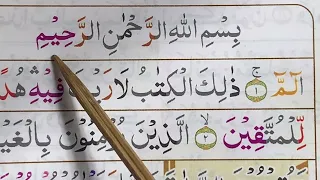 بِسْمِ اللهِ الرَّحْمٰنِ الرَّحِيْمِ
الٓمّٓ ۚ ۝١ ذٰلِكَ الْكِتٰبُ لَا رَيْبَ فِيْهِ ۛ هُدًى
لِّلْمُتَّقِيْنَ ۝٢ الَّذِيْنَ يُؤْمِنُوْنَ بِالْغَيْبِ